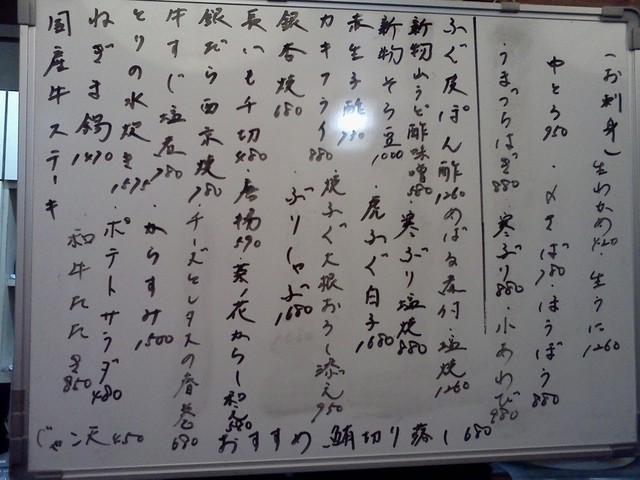 (お刺身) 生わかめ420 ・生うに1260
中とろ950 ・〆さば780 ・ほうぼう880
・うまづらはぎ880 ・寒ぶり880 ・小あわび980
ふぐ皮ぽん酢1260 めばる煮付・塩焼1260
新物山うど酢味噌580 ・寒ぶり塩焼880
新物そら豆1000 ・虎ふぐ白子1680
赤生子酢730
カキフライ880 ・焼ふぐ大根おろし添え950
銀杏焼680 ・ぶりしゃぶ1680
長いも千切480 ・唐揚590 ・菜ノ花からし和え580
銀だら西京焼780 ・チーズとレタスの春巻690
牛すじ塩煮780 ・からすみ1500
とりの水炊き1575 ・ポテトサラダ480
ねぎま鍋1470 和牛たたき850
国産牛ステーキ
じゃこ天450 おすすめ 鮪切り落し680